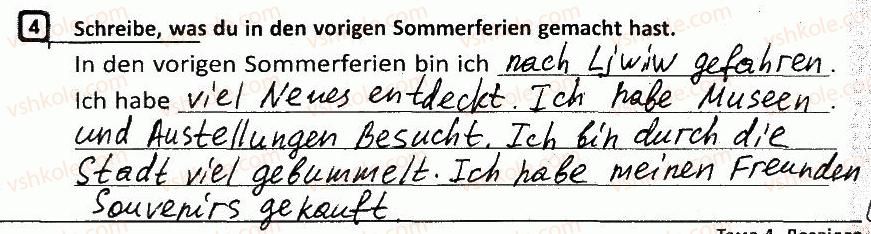 4 Schreibe, was du in den vorigen Sommerferien gemacht hast.
In den vorigen Sommerferien bin ich nach Ljwiw gefahren.
Ich habe viel Neues entdeckt. Ich habe Museen
und Austellungen Besucht. Ich bin durch die
Stadt viel gebummelt. Ich habe meinen Freunden
Souvenirs gekauft.